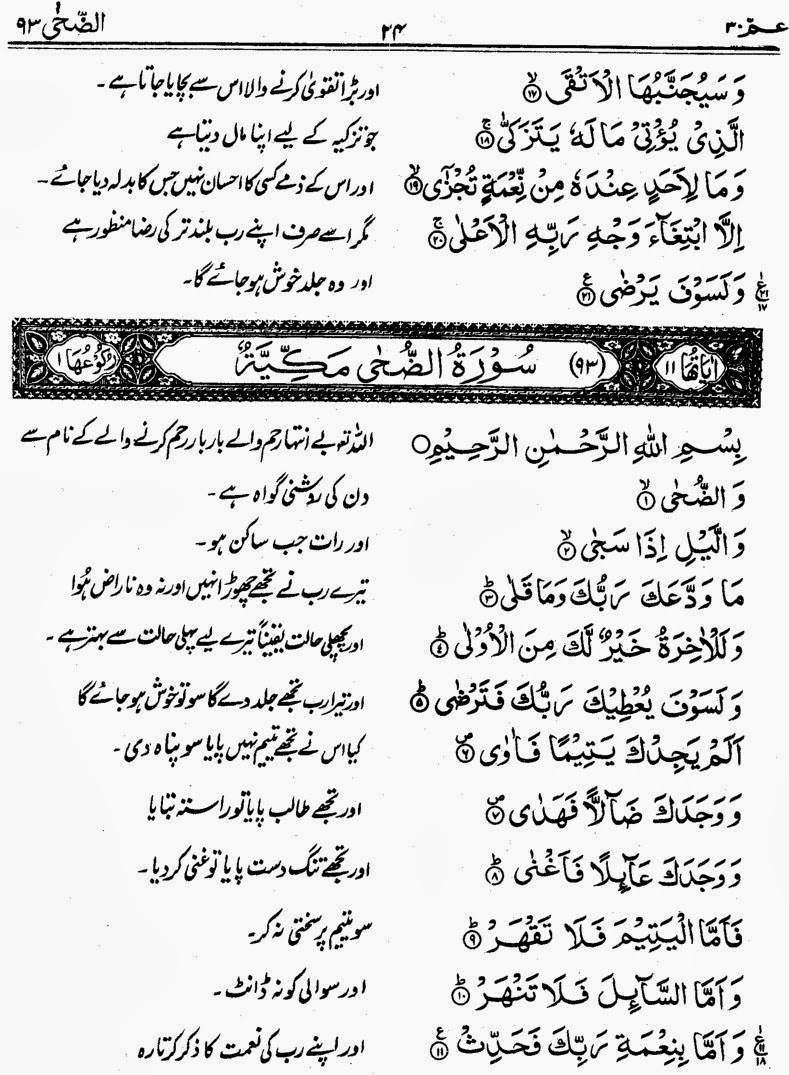 عـمّ ۳۰ ۲۴ الضّحٰی ۹۳
وَ سَيُجَنَّبُهَا الْاَتْقَى ۙ﴿۱۷﴾ اور بڑا تقویٰ کرنے والا اس سے بچایا جاتا ہے ۔
الَّذِىْ يُؤْتِىْ مَا لَهٗ يَتَزَكّٰى ۚ﴿۱۸﴾ جو تزکیہ کے لیے اپنا مال دیتا ہے
وَ مَا لِاَحَدٍ عِنْدَهٗ مِنْ نِّعْمَةٍ تُجْزٰۤى ۙ﴿۱۹﴾ اور اس کے ذمے کسی کا احسان نہیں جس کا بدلہ دیا جائے ۔
اِلَّا ابْتِغَآءَ وَجْهِ رَبِّهِ الْاَعْلٰى ۚ﴿۲۰﴾ مگر اسے صرف اپنے رب بلند تر کی رضا منظور ہے
وَ لَسَوْفَ يَرْضٰى ﴿۲۱﴾ ع ۲۱ ۱۷ اور وہ جلد خوش ہو جائے گا ۔
اٰيَاتُهَا ۱۱ (۹۳) سُوْرَةُ الضُّحٰى مَكِّيَّةٌ رُكُوْعُهَا ۱
بِسْمِ اللهِ الرَّحْمٰنِ الرَّحِيْمِ ○ اللہ تعالیٰ بے انتہا رحم والے بار بار رحم کرنے والے کے نام سے
وَ الضُّحٰى ۙ﴿۱﴾ دن کی روشنی گواہ ہے ۔
وَ الَّيْلِ اِذَا سَجٰى ۙ﴿۲﴾ اور رات جب ساکن ہو ۔
مَا وَدَّعَكَ رَبُّكَ وَمَا قَلٰى ؕ﴿۳﴾ تیرے رب نے تجھے چھوڑا نہیں اور نہ وہ ناراض ہُوا
وَ لَلْاٰخِرَةُ خَيْرٌ لَّكَ مِنَ الْاُوْلٰى ؕ﴿۴﴾ اور پچھلی حالت یقیناً تیرے لیے پہلی حالت سے بہتر ہے ۔
وَ لَسَوْفَ يُعْطِيْكَ رَبُّكَ فَتَرْضٰى ؕ﴿۵﴾ اور تیرا رب تجھے جلد دے گا سو تو خوش ہو جائے گا
اَلَمْ يَجِدْكَ يَتِيْمًا فَاٰوٰى ۪﴿۶﴾ کیا اس نے تجھے یتیم نہیں پایا سو پناہ دی ۔
وَ وَجَدَكَ ضَآلًّا فَهَدٰى ۪﴿۷﴾ اور تجھے طالب پایا تو راستہ بتایا
وَ وَجَدَكَ عَآئِلًا فَاَغْنٰى ؕ﴿۸﴾ اور تجھے تنگ دست پایا تو غنی کر دیا ۔
فَاَمَّا الْيَتِيْمَ فَلَا تَقْهَرْ ؕ﴿۹﴾ سو یتیم پر سختی نہ کر۔
وَ اَمَّا السَّآئِلَ فَلَا تَنْهَرْ ؕ﴿۱۰﴾ اور سوالی کو نہ ڈانٹ ۔
وَ اَمَّا بِنِعْمَةِ رَبِّكَ فَحَدِّثْ ﴿۱۱﴾ ع ۱۱ ۱۸ اور اپنے رب کی نعمت کا ذکر کرتا رہ